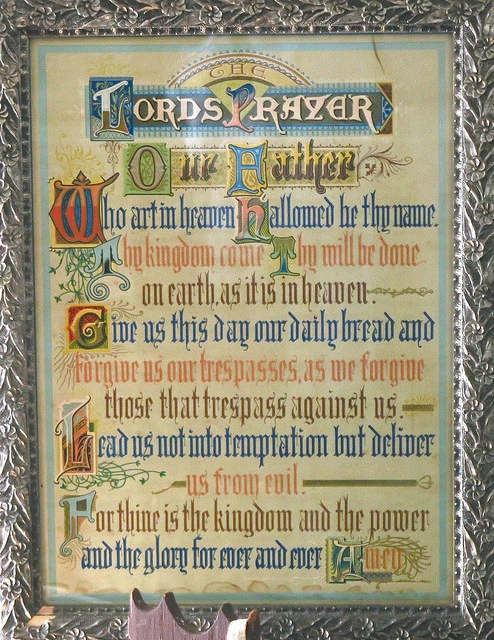 THE
LORDS PRAYER
Our Father
Who art in heaven Hallowed be thy name.
Thy kingdom come Thy will be done
on earth, as it is in heaven.
Give us this day our daily bread and
forgive us our trespasses, as we forgive
those that trespass against us.
Lead us not into temptation but deliver
us from evil.
For thine is the kingdom and the power
and the glory for ever and ever Amen